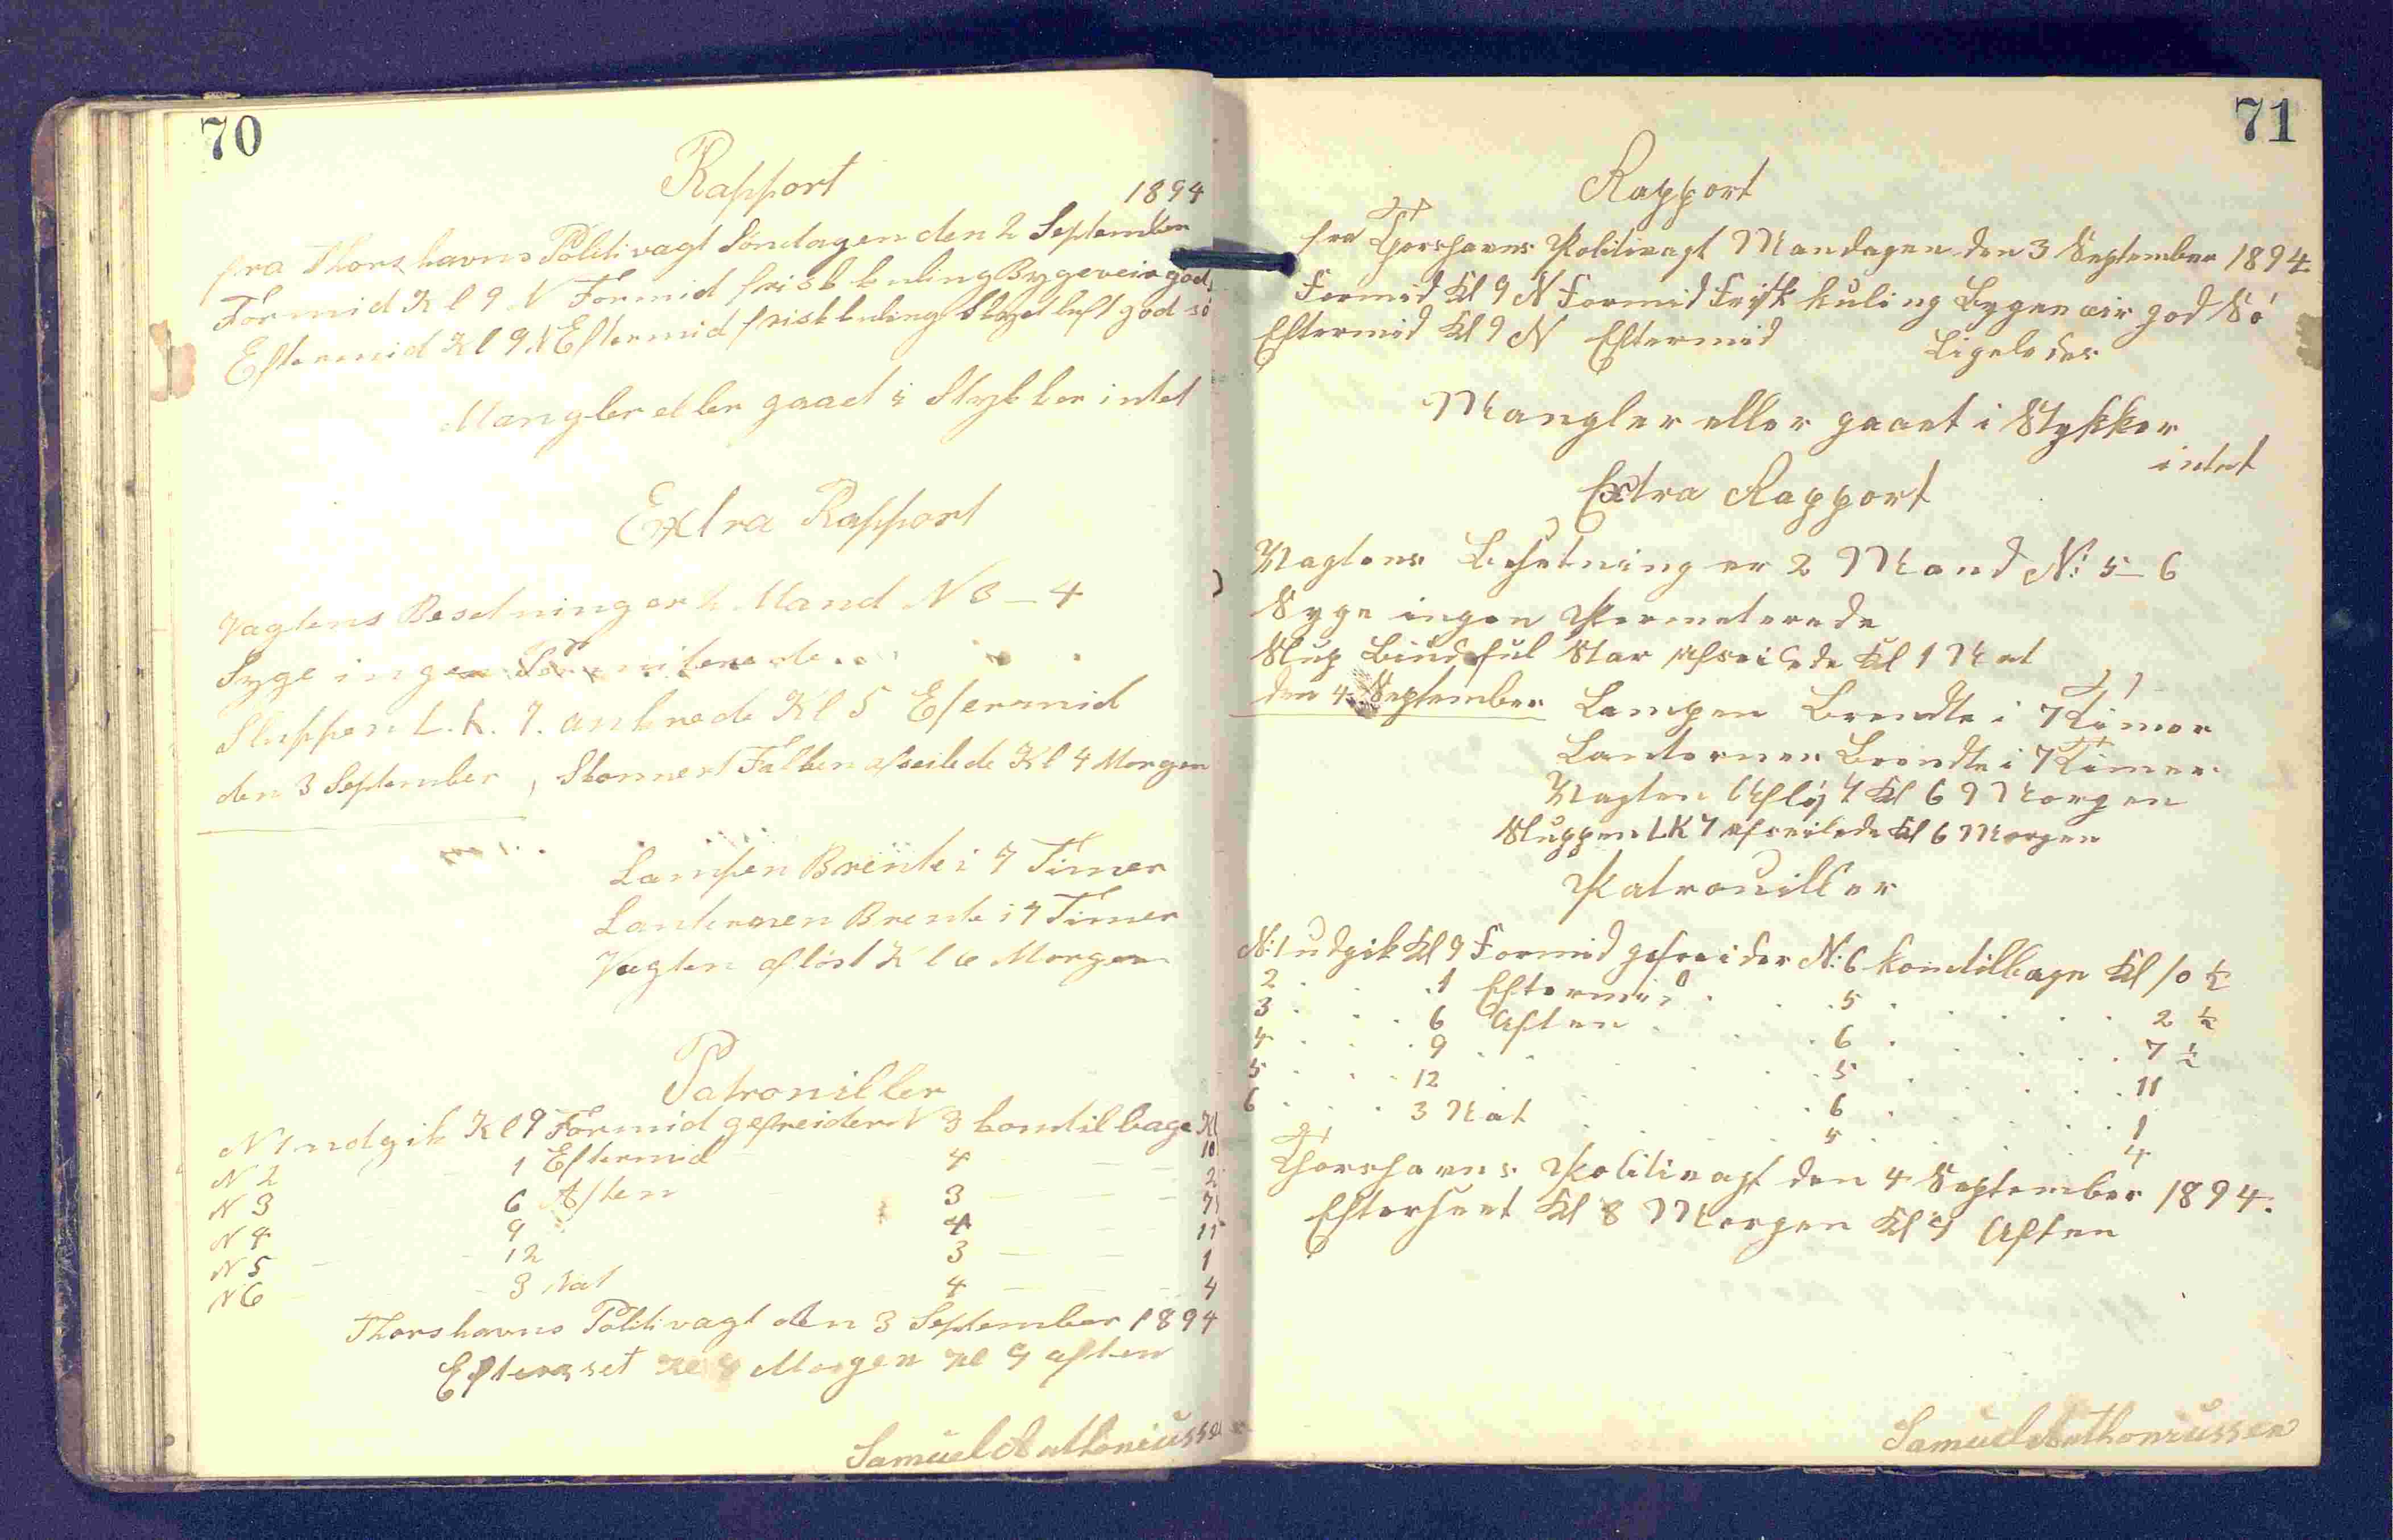 70
Rapport
1894
fra Thorshavns Politivagt Søndagen den 2 September
Formid Kl 9 N Formid frisk kuling Bygeveir god
Eftermid Kl 9 N Eftermid frisk kuling luft god sö
Mangler eller gaaet i Stykker intet
Extra Rapport
Vagtens Besetning er 2 Mand N 3 – 4
Syge ingen
Sluppen L.K. 7. ankrede Kl 5 Efermid
den 3 September, Skonnert Falken afseilede Kl 4 Morgen
Lampen Brente i 7 Timer
Lanternen Brente i 7 Timer
Vagten aflöst Kl 6 Morgen
Patrouiller
N 1 udgik Kl 9 Formid gefreider N 3 kom tilbage Kl 10
N 2 1 Eftermid 4 2
N 3 6 Aften 3 7
N 4 9 4 11
N 5 12 3 1
N 6 3 Nat 4 4
Thorshavns Politivagt den 3 September 1894
Efterset Kl 8 Morgen Kl 9 aften
Samuel Anthoniussen
71
Rapport
fra Thorshavns Politivagt Mandagen den 3 September 1894
Formid Kl 9 N Formid Frisk kuling Bygeveir god Sö
Eftermid Kl 9 N Eftermid Ligeledes
Mangler eller gaaet i Stykker
intet
Extra Rapport
Vagtens Besetning er 2 Mand N: 5 – 6
Syge ingen Permeterede
Slup Star Afseilede Kl 1 Nat
den 4 September Lampen Brendte i 7 Timer
Lanternen Brendte i 7 Timer
Vagten Aflöst Kl 6 Morgen
Sluppen LK 7 afseilede Kl 6 Morgen
Patrouiller
N: 1 udgik Kl 9 Formid gefreider N: 6 kom tilbage Kl 10 ½
2 . . . 1 Eftermid . . 5 . . . . 2 ½
3 . . . 6 Aften . . 6 . . . . 7 ½
4 . . . 9 . . . 5 . . . . 11
5 . . . 12 . . . 6 . . . . 1
6 . . . 3 Nat . . 5 . . . . 4
Thorshavns Politivagt den 4 September 1894.
Efterseet Kl 8 Morgen Kl 9 Aften
Samuel Anthoniussen